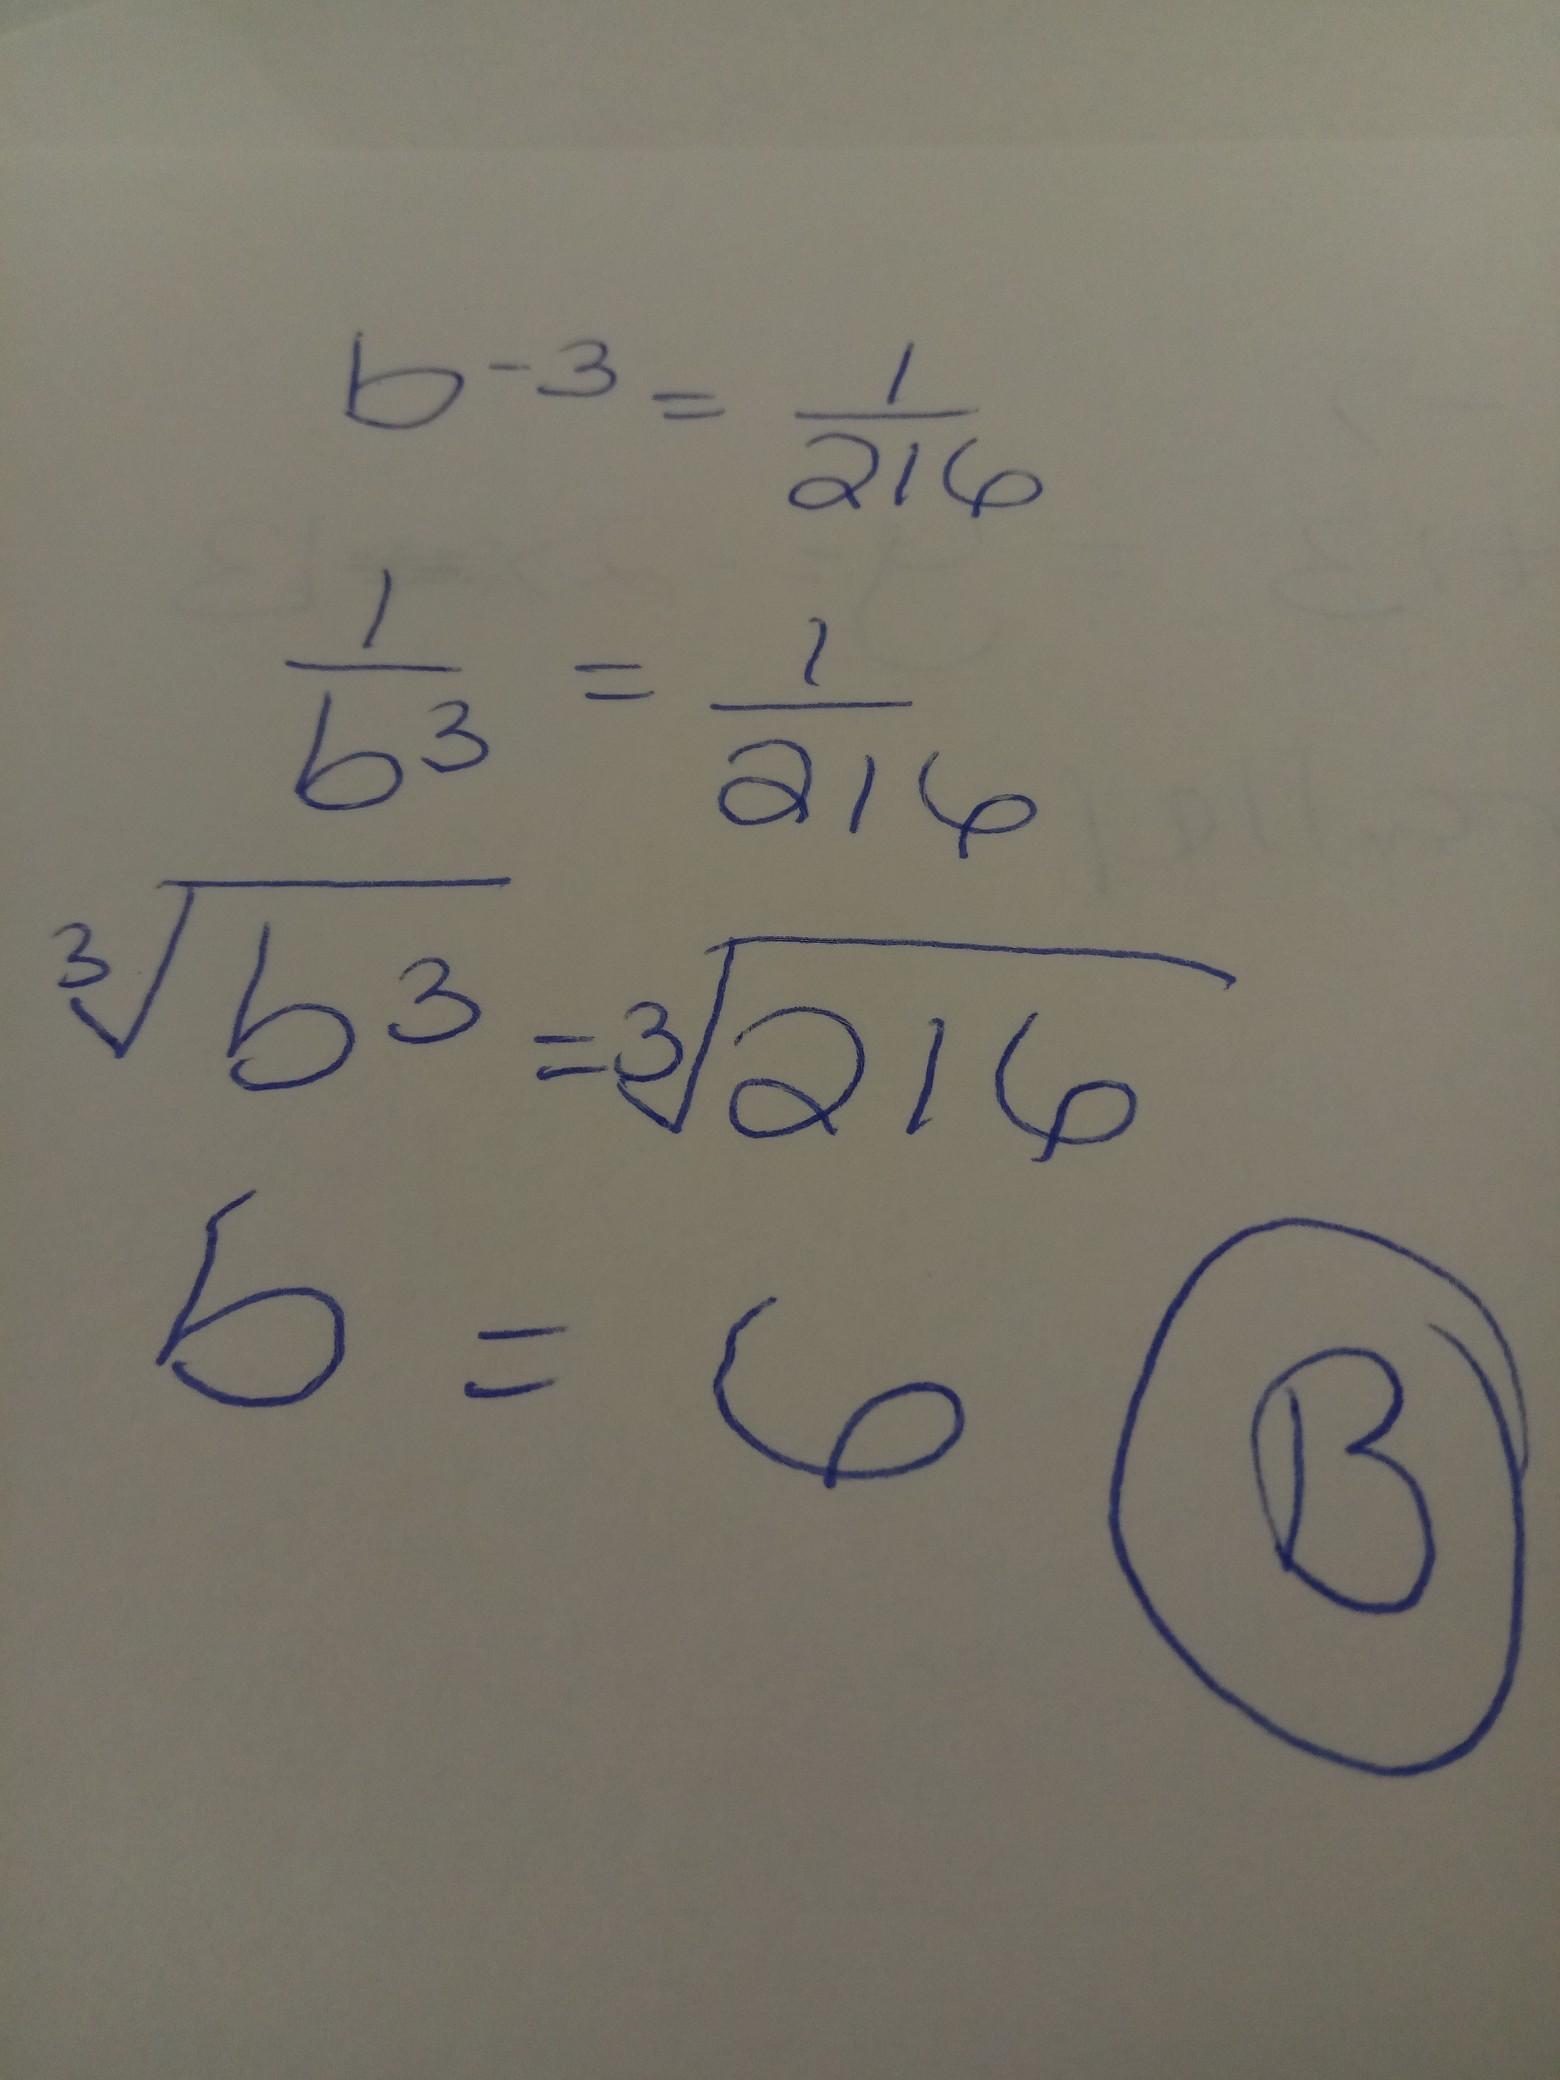 b⁻³ = 1/216
1/b³ = 1/216
∛b³ = ∛216
b = 6
B